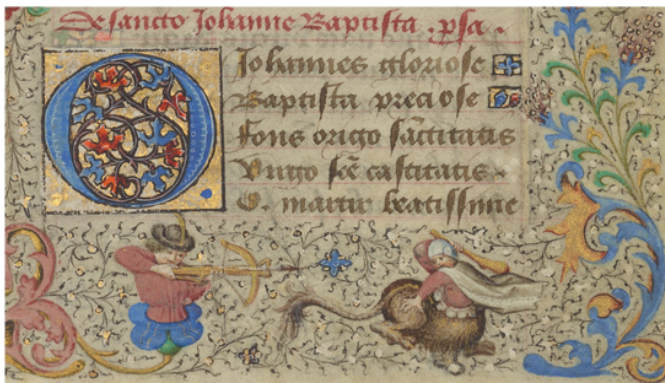 De sancto Johanne Baptista . p̄sa .
O Johannes gloriose
Baptista preciose
Fons origo sāctitatis
Virgo sc̄e castitatis .
O . martir beatissime